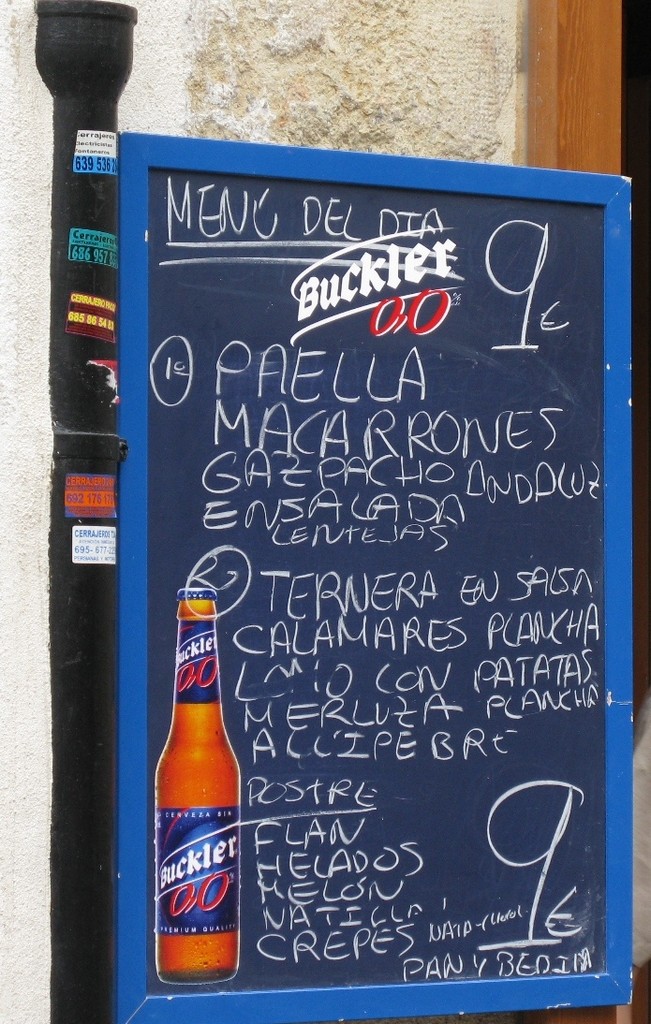 MENÚ DEL DIA
Buckler
0,0
9€
1º PAELLA
MACARRONES
GAZPACHO ANDALUZ
ENSALADA
LENTEJAS
2º TERNERA EN SALSA
CALAMARES PLANCHA
LOMO CON PATATAS
MERLUZA PLANCHA
ALL I PEBRE
POSTRE
FLAN
HELADOS
MELON
NATILLA
CREPES NATA-
9€
PAN Y BEDIDA
Buckler
0,0
CERVEZA SIN
Buckler
0,0
PREMIUM QUALITY
Cerrajeros
Electricistas
Fontaneros
639 536
Cerrajero
686 957
CERRAJERO
685 86 54
CERRAJERO
692 176 17
CERRAJEROS
695-677-
PERSIANAS Y